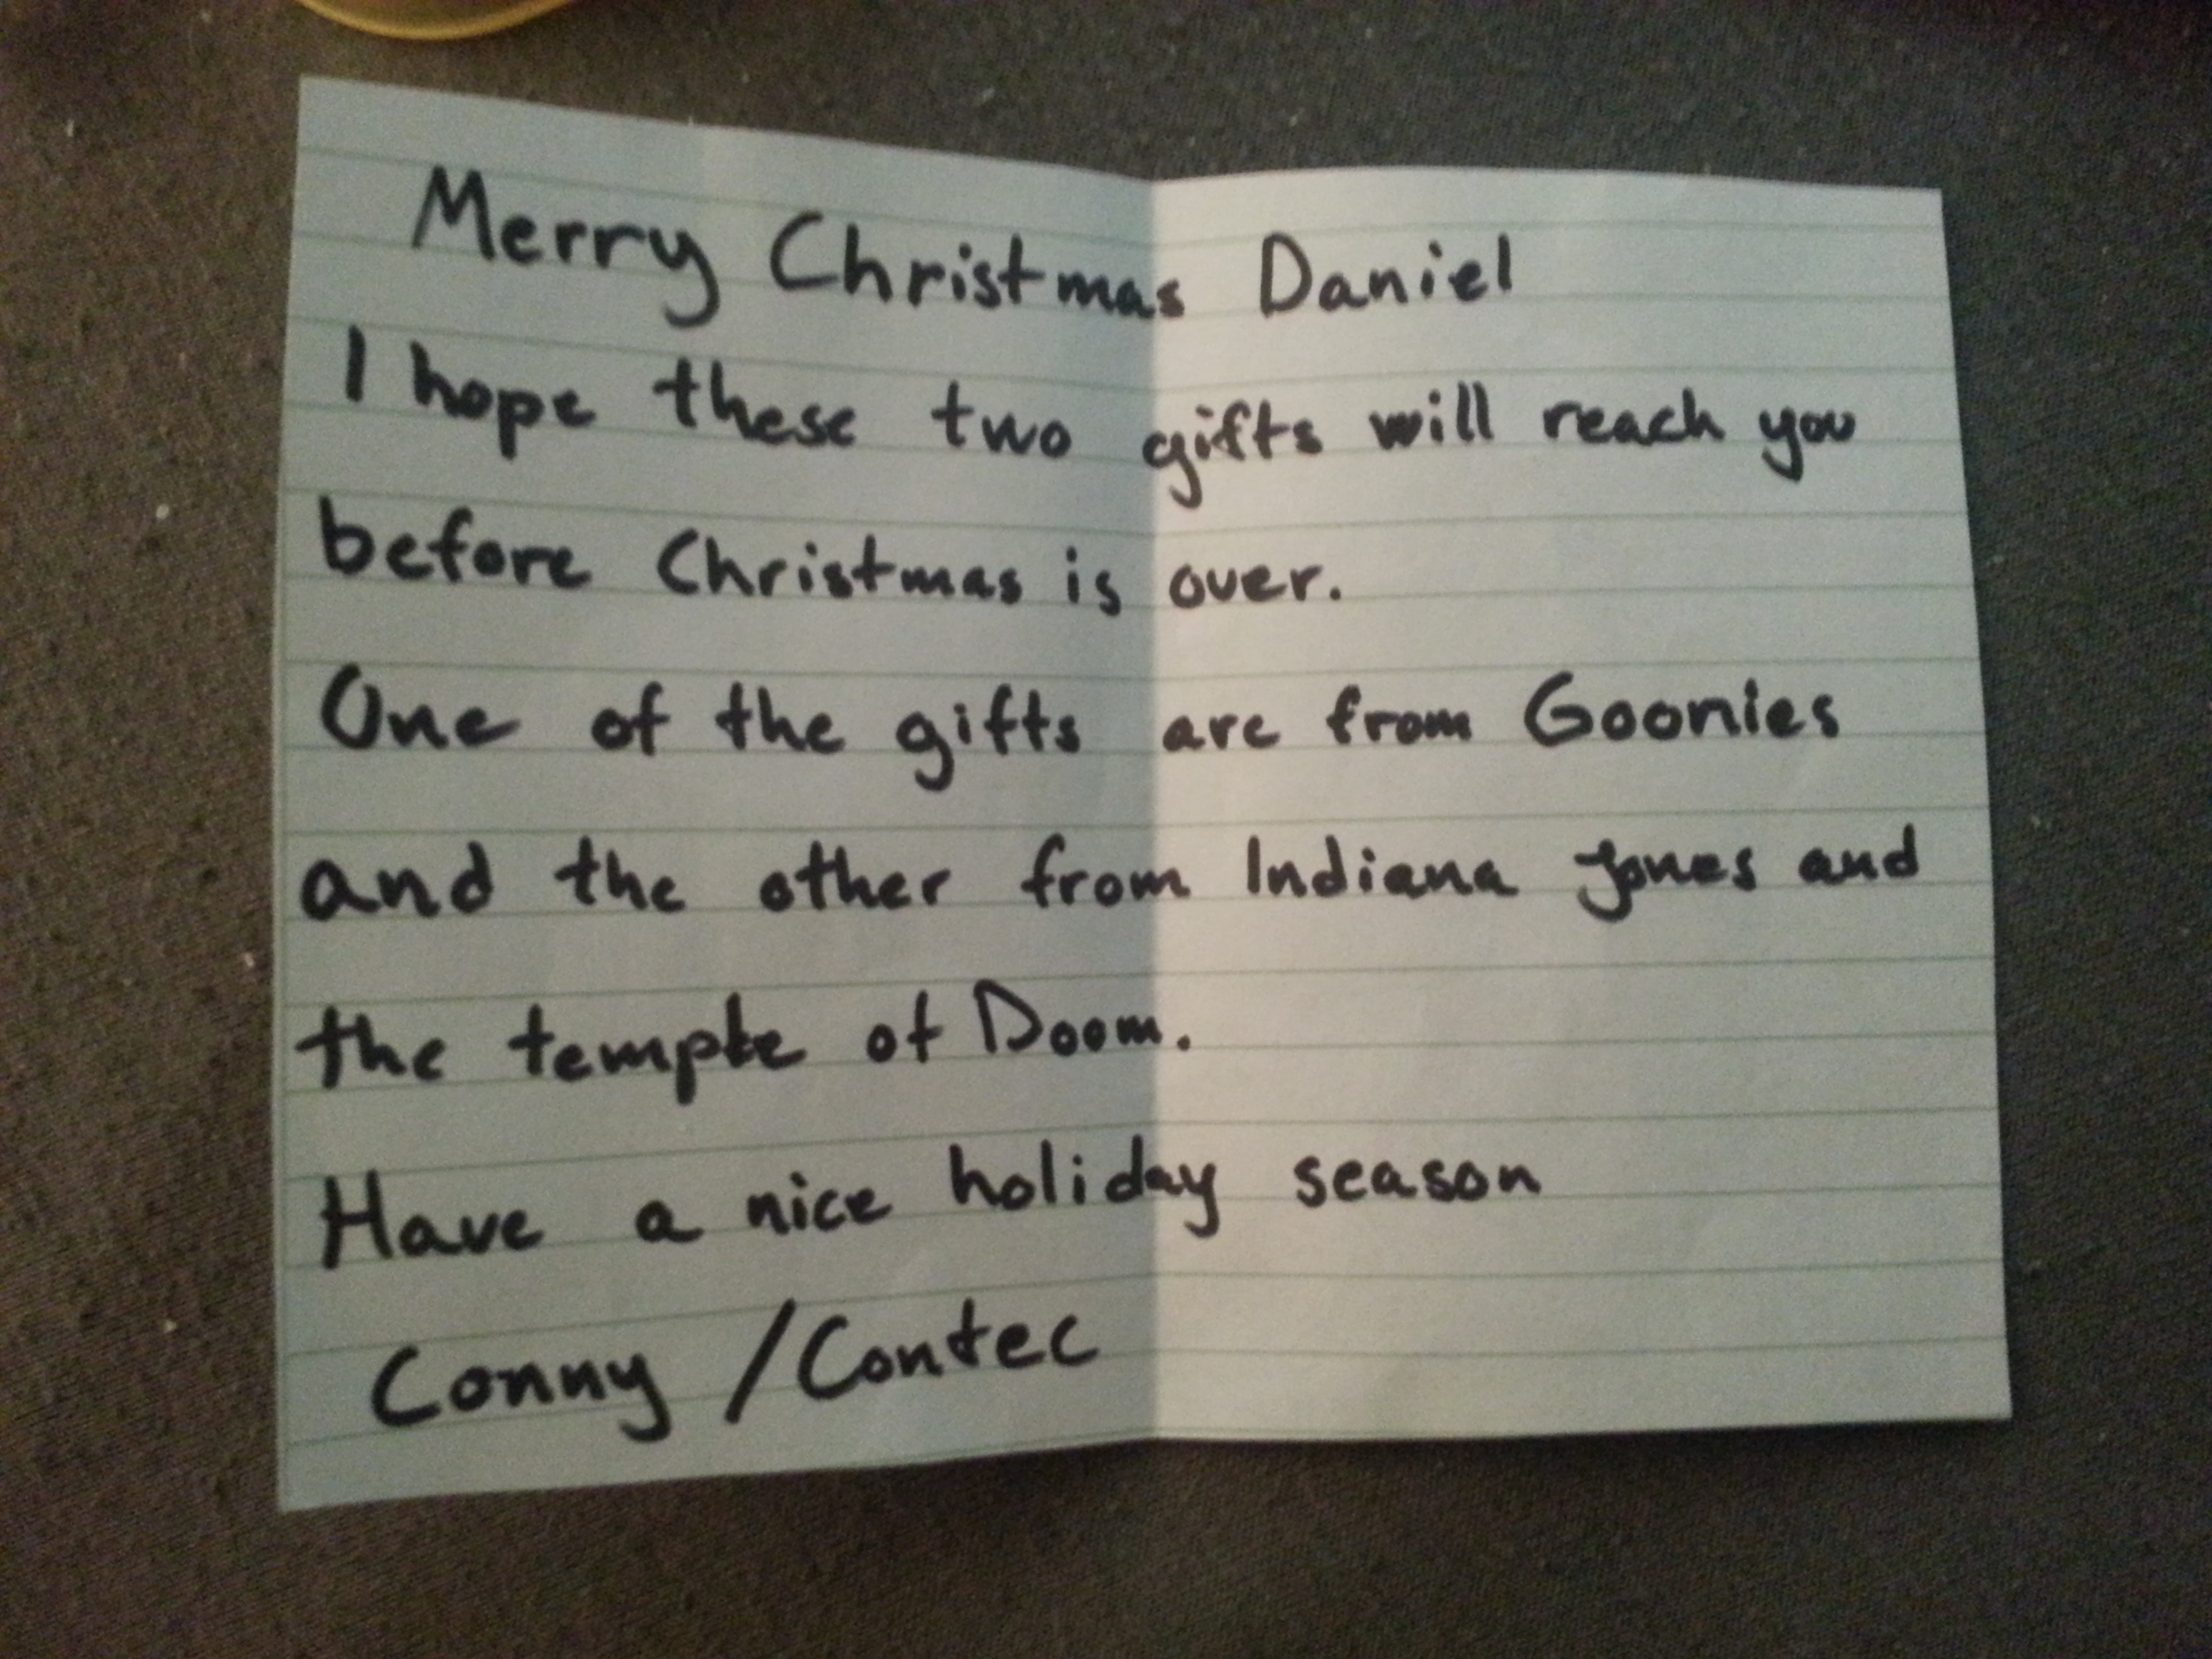 Merry Christmas Daniel
I hope these two gifts will reach you
before Christmas is over.
One of the gifts are from Goonies
and the other from Indiana Jones and
the temple of Doom.
Have a nice holiday season
Conny /Contec